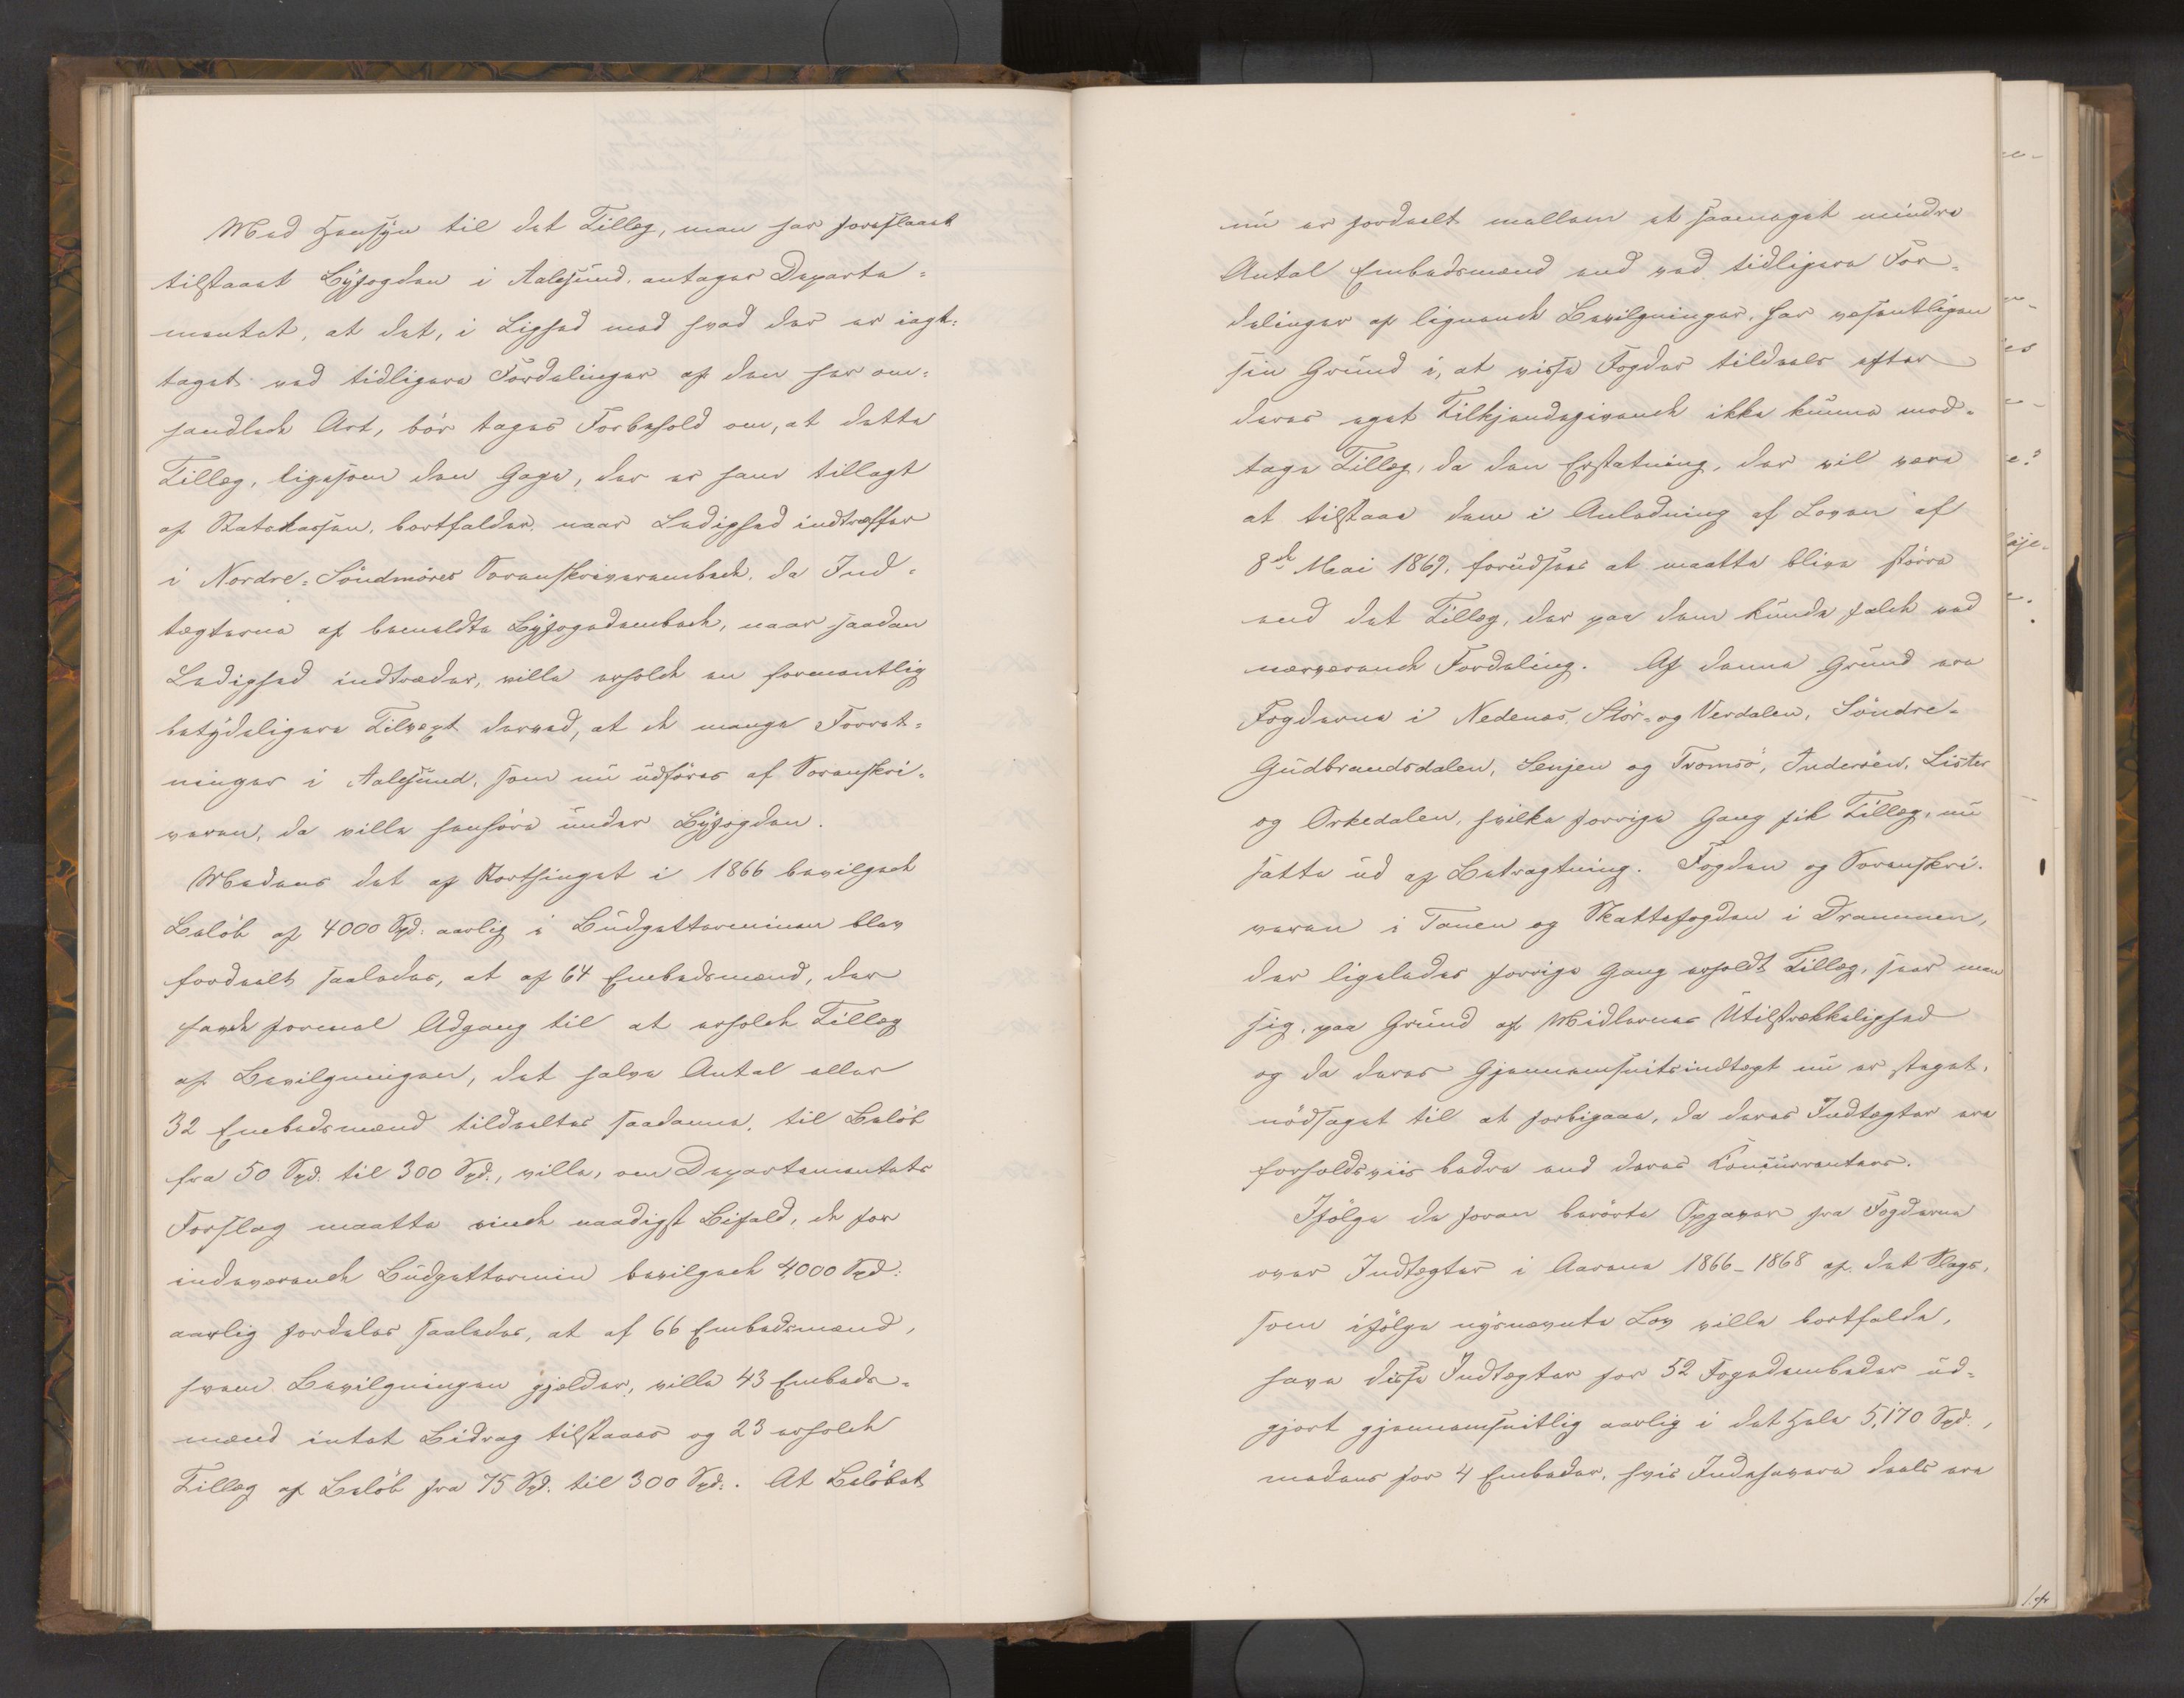 Med Hensyn til det Tillæg, man har foreslaaet
tilstaaet Byfogden i Aalesund, antager Departe-
mentet, at det, i Lighed med hvad der er iagt-
taget ved tidligere Fordelinger af den her om-
handlede Art, bör tages Forbehold om, at dette
Tillæg, ligesom den Gage, der er ham tillagt
af Statskassen, bortfalder, naar Ledighed indtræffer
i Nordre-Söndmöres Sorenskriverembede, da Ind-
tægterne af bemeldte Byfogedembede, naar saadan
Ledighed indtræder, ville erholde en formentlig
betydeligere Tilvext derved, at de mange Forret-
ninger i Aalesund, som nu udföres af Sorenskri-
veren, da ville henhöre under Byfogden.
Medens det af Storthinget i 1866 bevilgede
Belöb af 4000 Spd. aarlig i Budgetterminen blev
fordeelt saaledes, at af 64 Embedsmænd, der
havde formel Adgang til at erholde Tillæg
af Bevilgningen, det halve Antal eller
32 Embedsmænd tildeeltes saadanne, til Belöb
fra 50 Spd. til 300 Spd., ville, om Departementets
Forslag maatte vinde naadigst Bifald, de for
indeværende Budgettermin bevilgede 4000 Spd.
aarlig fordeles saaledes, at af 66 Embedsmænd,
hvem Bevilgningen gjelder, ville 43 Embeds-
mænd intet Bidrag tilstaaes og 23 erholde
Tillæg af Belöb fra 75 Spd. til 300 Spd. At Belöbet
nu er fordeelt mellem et saameget mindre
Antal Embedsmænd end ved tidligere For-
delinger af lignende Bevilgninger, har væsentligen
sin Grund i, at visse Fogder tildeels efter
deres eget Tilkjendegivende ikke kunne mod-
tage Tillæg, da den Erstatning, der vil være
at tilstaae dem i Anledning af Loven af
8de Mai 1869, forudsees at maatte blive större
end det Tillæg, der paa dem kunde falde ved
nærværende Fordeling. Af denne Grund ere
Fogderne i Nedenæs, Stör- og Verdalen, Söndre-
Gudbrandsdalen, Senjen og Tromsö, Inderöen, Lister
og Orkedalen, hvilke forrige Gang fik Tillæg, nu
satte ud af Betragtning. Fogden og Sorenskri-
veren i Tanen og Skattefogden i Drammen,
der ligeledes forrige Gang erholdt Tillæg, seer man
sig, paa Grund af Midlernes Utilstrækkelighed
og da deres Gjennemsnitsindtægt nu er steget,
nödsaget til at forbigaae, da deres Indtægter ere
forholdsviis bedre end deres Koncurrenters.
Ifölge de foran berörte Opgaver fra Fogderne
over Indtægter i Aarene 1866-1868 af det Slags,
som ifölge nysnævnte Lov ville bortfalde,
have disse Indtægter for 52 Fogedembeder ud-
gjort gjennemsnitlig aarlig i det Hele 5,170 Spd.,
medens for 4 Embeder, hvis Indehavere deels ere